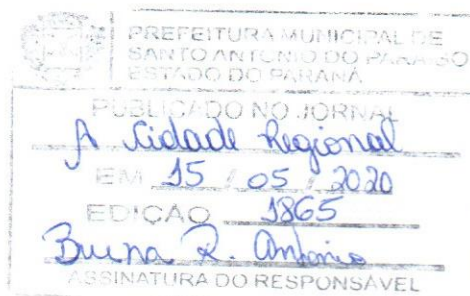 PREFEITURA MUNICIPAL DE
SANTO ANTONIO DO PARAISO
ESTADO DO PARANÁ
PUBLICADO NO JORNAL
A Cidade Regional
EM 15 / 05 / 2020
EDIÇÃO 1865
Bruna R. Antonio
ASSINATURA DO RESPONSÁVEL